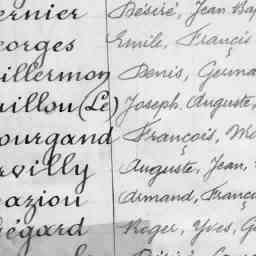 ernier Désiré, Jean Bap
eorges Emile, Françis
illermon Denis, Germa
uillou (Le) Joseph, Auguste,
ourgand François, Ma
rvilly Auguste, Jean,
aziou Armand, Franço
égard Roger, Yves, G